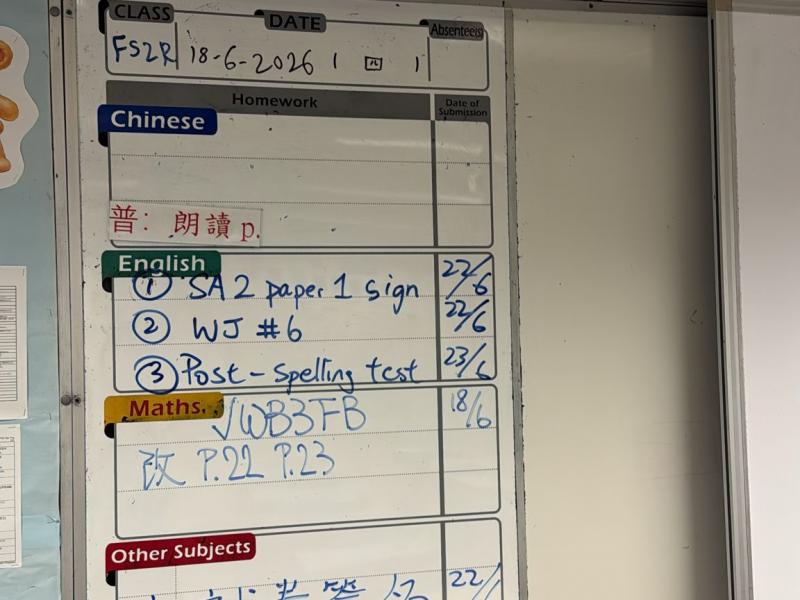 CLASS DATE Absentees
FS2R 18-6-2026 ( 四 )
Homework Date of Submission
Chinese
普: 朗讀 p.
English
① SA 2 paper 1 sign 22/6
② WJ #6 22/6
③ Post-spelling test 23/6
Maths.
√WB3FB 18/6
改 P.22 P.23
Other Subjects
22/